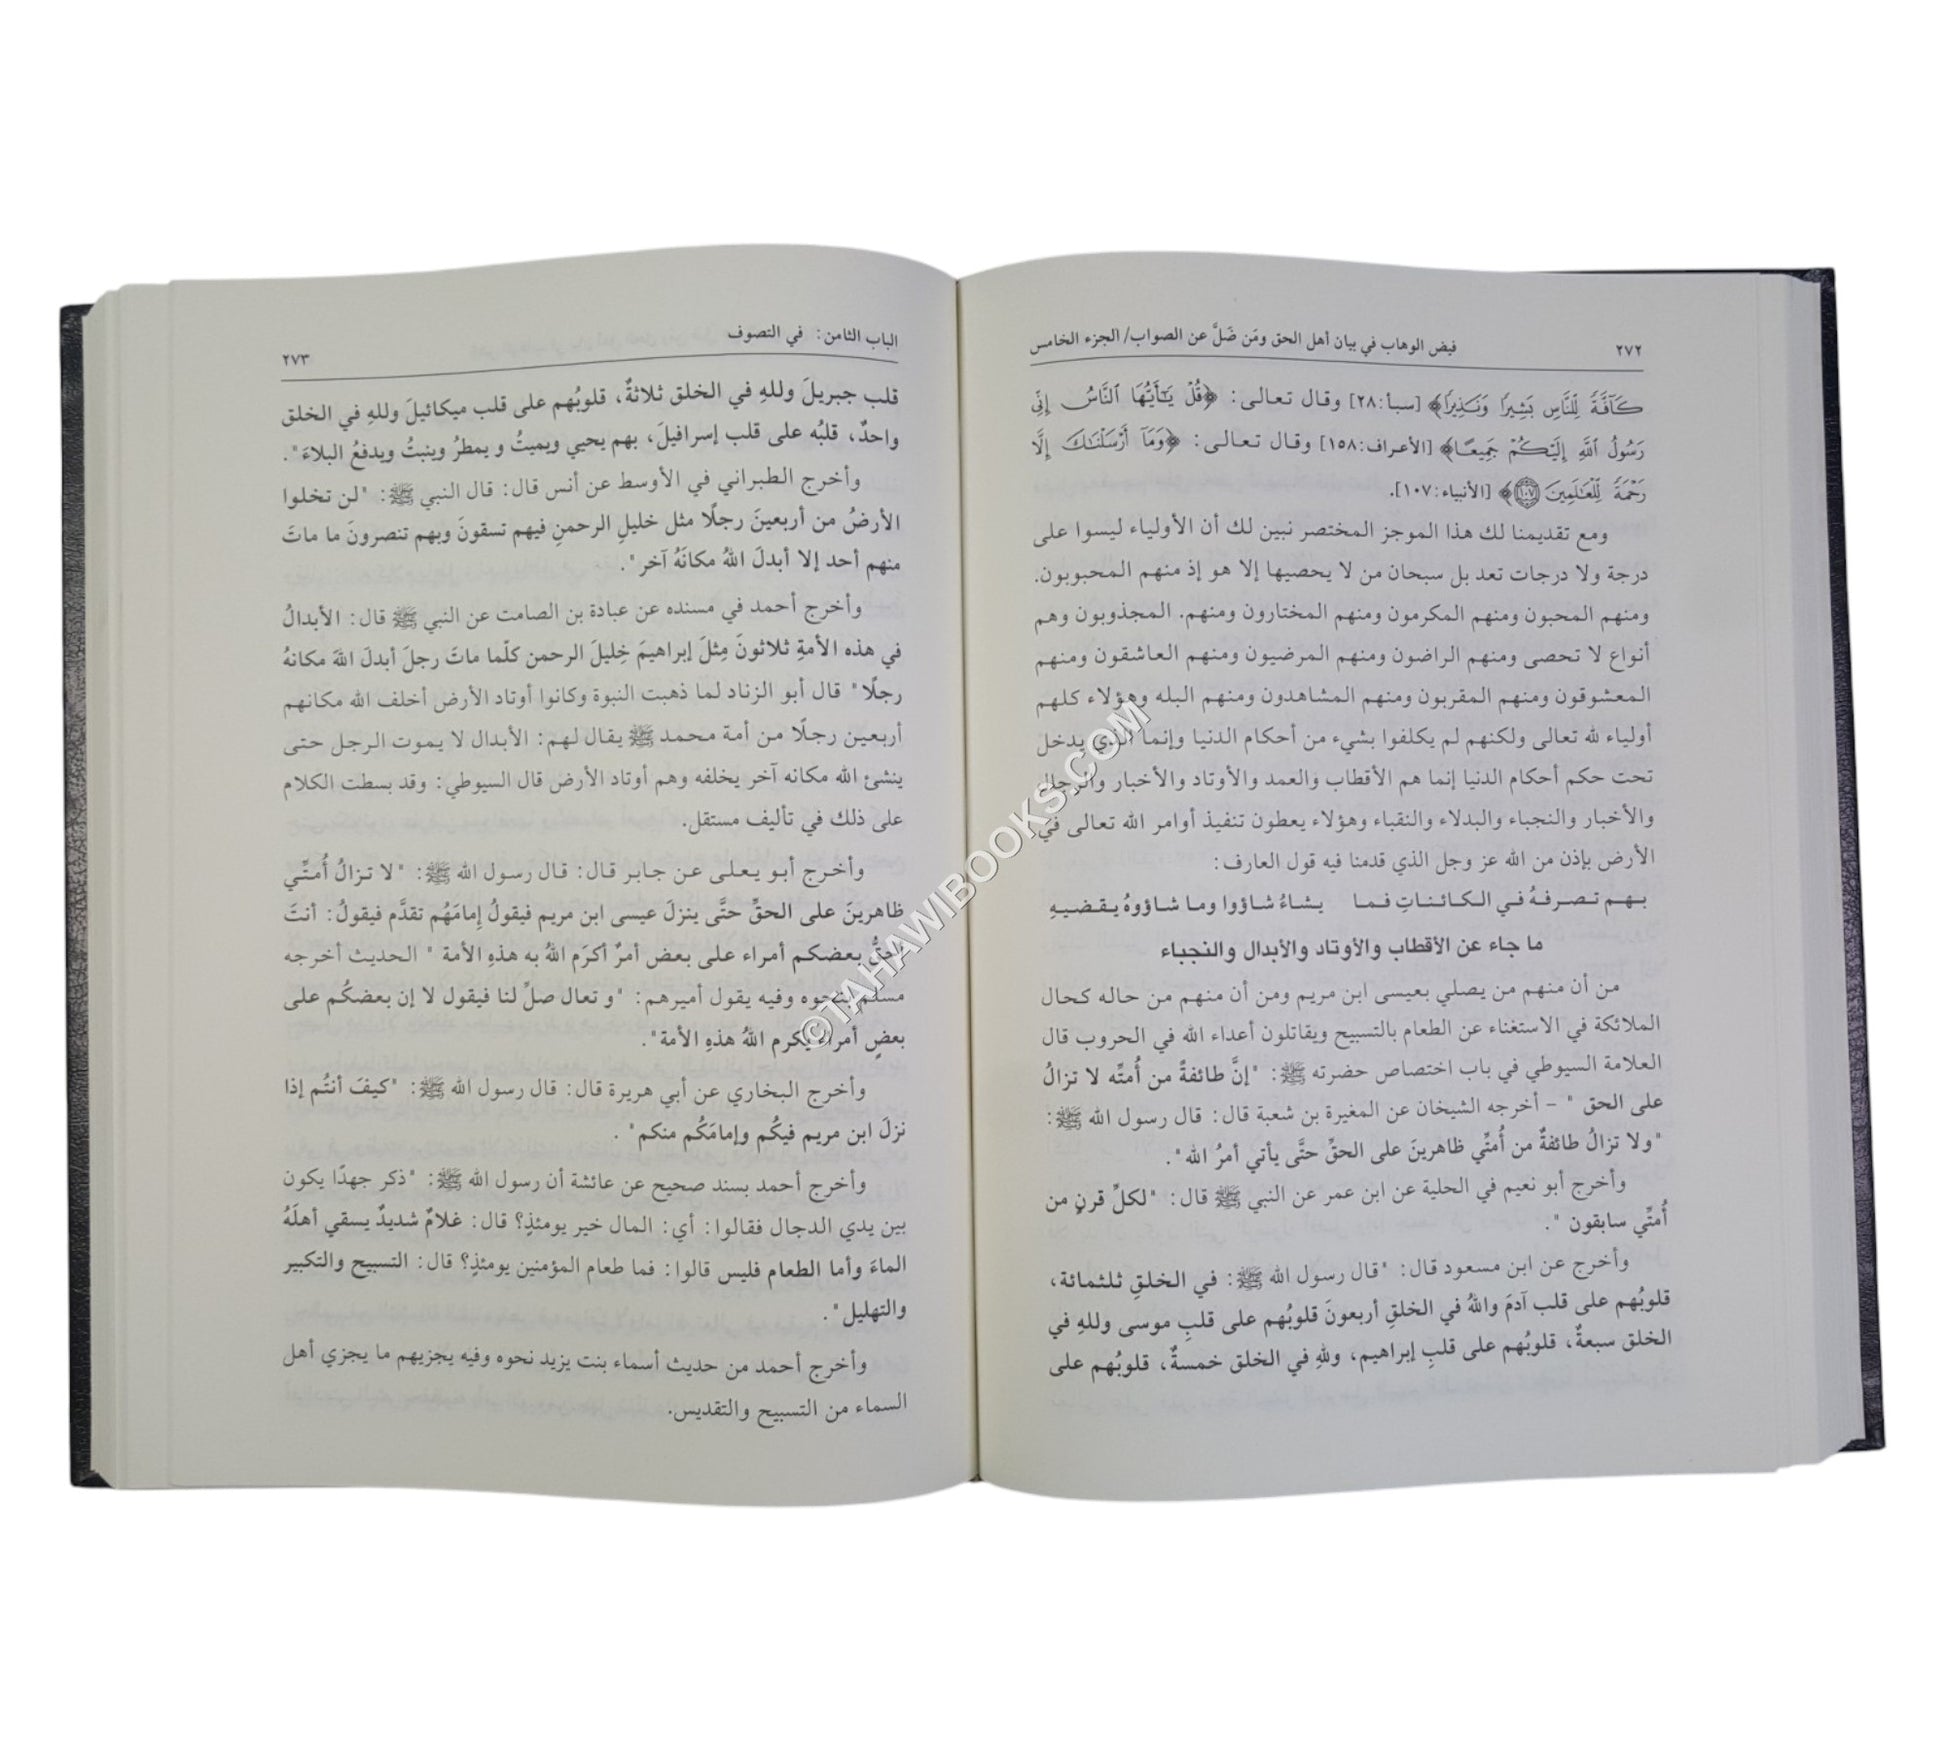 ٢٧٢ فيض الوهاب في بيان أهل الحق ومَن ضَلَّ عن الصواب/ الجزء الخامس
كَآفَّةً لِّلنَّاسِ بَشِيرًا وَنَذِيرًا﴾ [سبأ:٢٨] وقال تعالى: ﴿قُلْ يَٰٓأَيُّهَا ٱلنَّاسُ إِنِّي
رَسُولُ ٱللَّهِ إِلَيْكُمْ جَمِيعًا﴾ [الأعراف:١٥٨] وقال تعالى: ﴿وَمَآ أَرْسَلْنَٰكَ إِلَّا
رَحْمَةً لِّلْعَٰلَمِينَ ١٠٧﴾ [الأنبياء:١٠٧].
ومع تقديمنا لك هذا الموجز المختصر نبين لك أن الأولياء ليسوا على
درجة ولا درجات تعد بل سبحان من لا يحصيها إلا هو إذ منهم المحبوبون.
ومنهم المحبون ومنهم المكرمون ومنهم المختارون ومنهم. المجذوبون وهم
أنواع لا تحصى ومنهم الراضون ومنهم المرضيون ومنهم العاشقون ومنهم
المعشوقون ومنهم المقربون ومنهم المشاهدون ومنهم البله وهؤلاء كلهم
أولياء لله تعالى ولكنهم لم يكلفوا بشيء من أحكام الدنيا وإنما الذي يدخل
تحت حكم أحكام الدنيا إنما هم الأقطاب والعمد والأوتاد والأخبار والرجال
والأخبار والنجباء والبدلاء والنقباء وهؤلاء يعطون تنفيذ أوامر الله تعالى في
الأرض بإذن من الله عز وجل الذي قدمنا فيه قول العارف:
بهم تصرفهُ في الكائناتِ فما يشاءُ شاؤوا وما شاؤوهُ يقضيهِ
ما جاء عن الأقطاب والأوتاد والأبدال والنجباء
من أن منهم من يصلي بعيسى ابن مريم ومن أن منهم من حاله كحال
الملائكة في الاستغناء عن الطعام بالتسبيح ويقاتلون أعداء الله في الحروب قال
العلامة السيوطي في باب اختصاص حضرته ﷺ: "إنَّ طائفةً من أُمتِّه لا تزالُ
على الحق " – أخرجه الشيخان عن المغيرة بن شعبة قال: قال رسول الله ﷺ:
"ولا تزالُ طائفةٌ من أُمتِّي ظاهرينَ على الحقِّ حتَّى يأتي أمرُ الله".
وأخرج أبو نعيم في الحلية عن ابن عمر عن النبي ﷺ قال: "لكلِّ قرنٍ من
أُمتِّي سابقون ".
وأخرج عن ابن مسعود قال: "قال رسول الله ﷺ: في الخلقِ ثلثمائة،
قلوبُهم على قلب آدمَ واللهُ في الخلقِ أربعونَ قلوبُهم على قلبِ موسى وللهِ في
الخلق سبعةٌ، قلوبُهم على قلبِ إبراهيم، وللهِ في الخلق خمسةٌ، قلوبُهم على
الباب الثامن: في التصوف ٢٧٣
قلب جبريلَ وللهِ في الخلق ثلاثةٌ، قلوبُهم على قلب ميكائيلَ وللهِ في الخلق
واحدٌ، قلبُه على قلب إسرافيلَ، بهم يحيي ويميتُ و يمطرُ وينبتُ ويدفعُ البلاءَ".
وأخرج الطبراني في الأوسط عن أنس قال: قال النبي ﷺ: "لن تخلوا
الأرضُ من أربعينَ رجلًا مثل خليلِ الرحمنِ فيهم تسقونَ وبهم تنصرونَ ما ماتَ
منهم أحد إلا أبدلَ اللهُ مكانَهُ آخر".
وأخرج أحمد في مسنده عن عبادة بن الصامت عن النبي ﷺ قال: الأبدالُ
في هذه الأمةِ ثلاثونَ مِثلَ إبراهيمَ خِليلَ الرحمن كلّما ماتَ رجلَ أبدلَ اللهَ مكانهُ
رجلًا" قال أبو الزناد لما ذهبت النبوة وكانوا أوتاد الأرض أخلف الله مكانهم
أربعين رجلًا من أمة محمد ﷺ يقال لهم: الأبدال لا يموت الرجل حتى
ينشئ الله مكانه آخر يخلفه وهم أوتاد الأرض قال السيوطي: وقد بسطت الكلام
على ذلك في تأليف مستقل.
وأخرج أبو يعلى عن جابر قال: قال رسول الله ﷺ: "لا تزالُ أُمتِّي
ظاهرينَ على الحقِّ حتَّى ينزلَ عيسى ابن مريم فيقولُ إمامَهُم تقدَّم فيقولُ: أنتَ
الحقُّ بعضكم أمراء على بعض أمرٌ أكرَم اللهُ به هذهِ الأمة " الحديث أخرجه
مسلم بنحوه وفيه يقول أميرهم: "و تعال صلِّ لنا فيقول لا إن بعضكُم على
بعضٍ أمراء يكرم اللهُ هذهِ الأمة".
وأخرج البخاري عن أبي هريرة قال: قال رسول الله ﷺ: "كيفَ أنتُم إذا
نزلَ ابن مريم فيكُم وإمامَكُم منكم" .
وأخرج أحمد بسند صحيح عن عائشة أن رسول الله ﷺ: "ذكر جهدًا يكون
بين يدي الدجال فقالوا: أي: المال خير يومئذٍ؟ قال: غلامٌ شديدٌ يسقي أهلَهُ
الماءَ وأما الطعام فليس قالوا: فما طعام المؤمنين يومئذٍ؟ قال: التسبيح والتكبير
والتهليل".
وأخرج أحمد من حديث أسماء بنت يزيد نحوه وفيه يجزيهم ما يجزي أهل
السماء من التسبيح والتقديس.
©TAHAWIBOOKS.COM